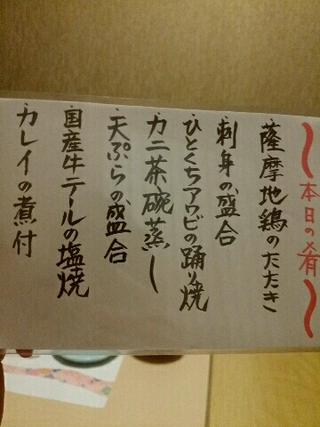 本日の肴
薩摩地鶏のたたき
刺身の盛合
ひとくちアワビの踊り焼
カニ茶碗蒸し
天ぷらの盛合
国産牛テールの塩焼
カレイの煮付